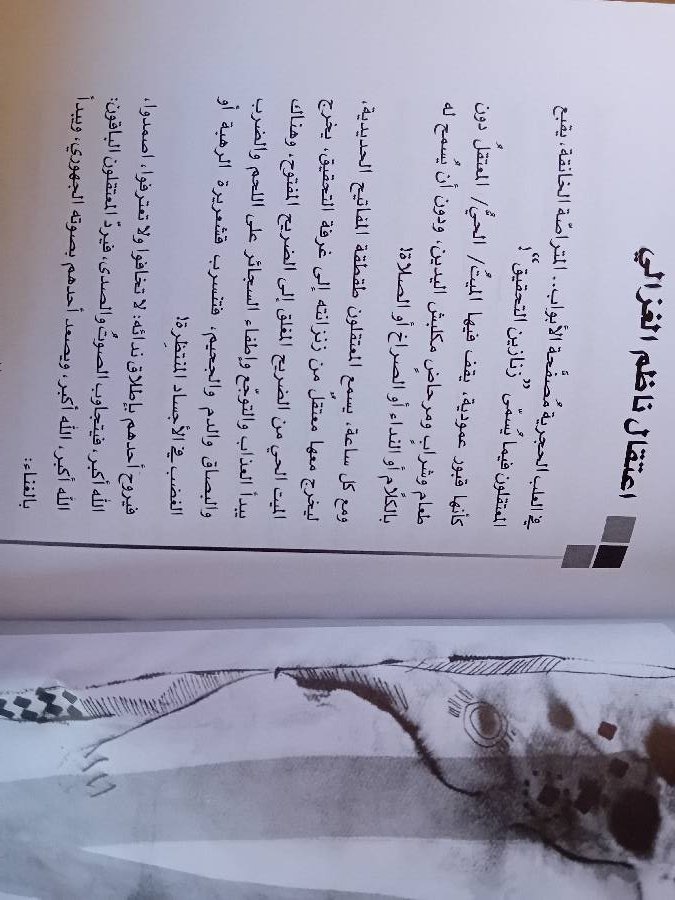 اعتقال ناظم الغزالي
في العلب الحجرية مُصفَّحة الأبواب.. المتراصّة الخانقة، يقبع
المعتقلون فيما يُسمّى "زنازين التحقيق"!
كأنها قبور عمودية، يقف فيها الميتُ/ الحيُّ/ المعتقلُ دون
طعامٍ وشرابٍ ومرحاضٍ مكلبش اليدين، ودون أن يُسمح له
بالكلام أو النداء أو الصراخ أو الصلاة!
ومع كل ساعة، يسمع المعتقلون طقطقة المفاتيح الحديدية،
ليخرج معها معتقلٌ من زنزانته إلى غرفة التحقيق، يخرج
الميت الحي من الضريح المغلق إلى الضريح المفتوح، وهناك
يبدأ العذاب والتوجّع وإطفاء السجائر على اللحم والضرب
والبصاق والدم والجحيم، فتتسرب قشعريرة الرهبة أو
الغضب في الأجساد المنتظِرة!
فيروح أحدهم بإطلاق ندائه: لا تخافوا ولا تعترفوا، اصمدوا،
الله أكبر، فيتجاوب الصوتُ والصدى، فيردّ المعتقلون الباقون:
الله أكبر، الله أكبر، ويصعد أحدهم بصوته الجهوري، ويبدأ
بالغناء: